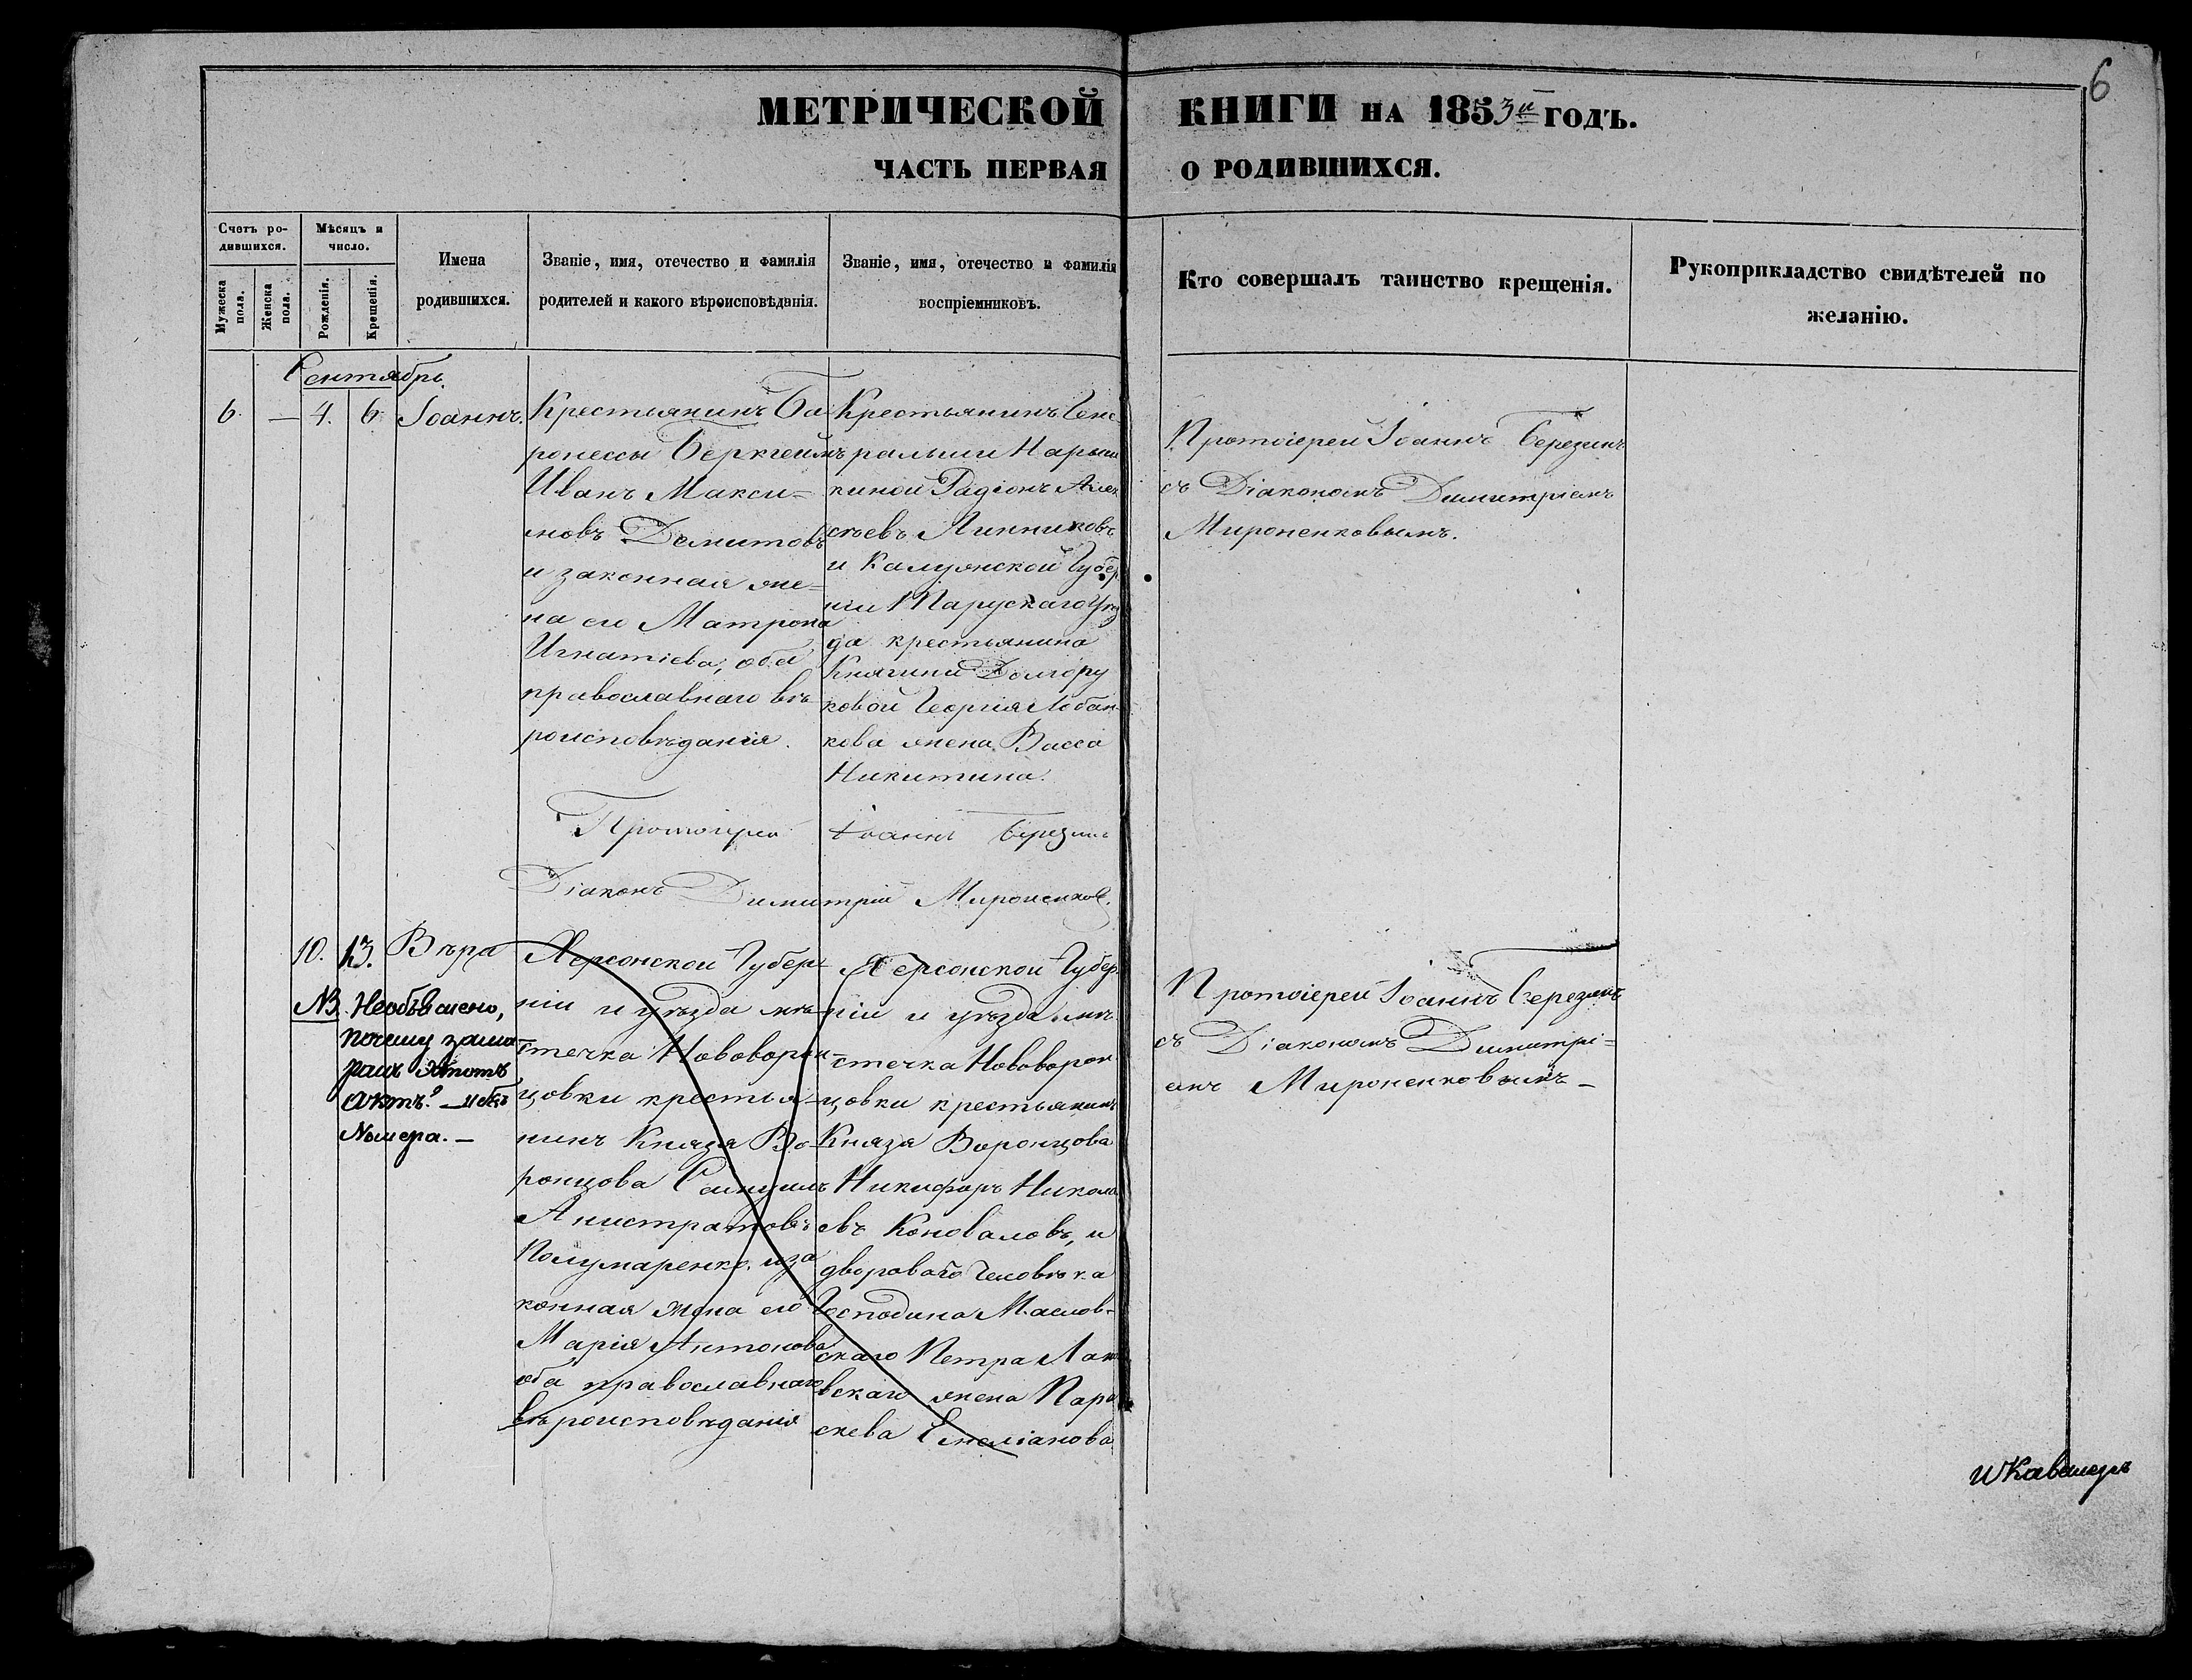 6
МЕТРИЧЕСКОЙ КНИГИ НА 1853й ГОДЪ.
ЧАСТЬ ПЕРВАЯ О РОДИВШИХСЯ.
Счетъ ро-
дившихся.
Мужеска пола.
Женска пола.
Мѣсяцъ и
число.
Рожденія.
Крещенія.
Имена
родившихся.
Званіе, имя, отечество и фамилія
родителей и какого вѣроисповѣданія.
Званіе, имя, отечество и фамилія
воспріемниковъ.
Кто совершалъ таинство крещенія.
Рукоприкладство свидѣтелей по
желанію.
Сентябрь.
6. — 4. 6 Іоаннъ.
Крестьянинъ Ба
ронессы Беркгеймъ
Иванъ Макси=
мовъ Демитовъ
и законная же=
на его Матрона
Игнатіева, оба
православнаго вѣ
роисповѣданія.
Крестьянинъ Гене
ральши Нарыш
киной Радіонъ Алек
сѣевъ Линниковъ
и Калужской Губер
ніи Тарускаго Уѣз
да крестьянина
Княгини Долгору
ковой Георгія Лобан
кова жена Васса
Никитина.
Протоіерей Іоаннъ Березинъ
съ Діакономъ Димитріемъ
Мироненковымъ.
Протоіерей Іоаннъ Березинъ
Діаконъ Димитрій Мироненков.
10. 13. Вѣра
NB. Необъяснено,
почему зама
ранъ этотъ
актъ? — и безъ
Номера. —
Херсонской Губер
ніи и уѣзда мѣ
стечка Нововорон
цовки крестья
нинъ Князя Во
ронцова Самуилъ
Анистратовъ
Полумаренко и за
конная жена его
Марія Антонова
оба православнаго
вѣроисповѣданія
Херсонской Губер
ніи и уѣзда мѣ
стечка Нововорон
цовки крестьянинъ
Князя Воронцова
Никифоръ Никола
евъ Коноваловъ, и
двороваго человѣка
Господина Маслов-
скаго Петра
вскаго жена Пара
скева Емеліанова
Протоіерей Іоаннъ Березинъ
съ Діакономъ Димитрі=
емъ Мироненковымъ —
и Кавалеръ